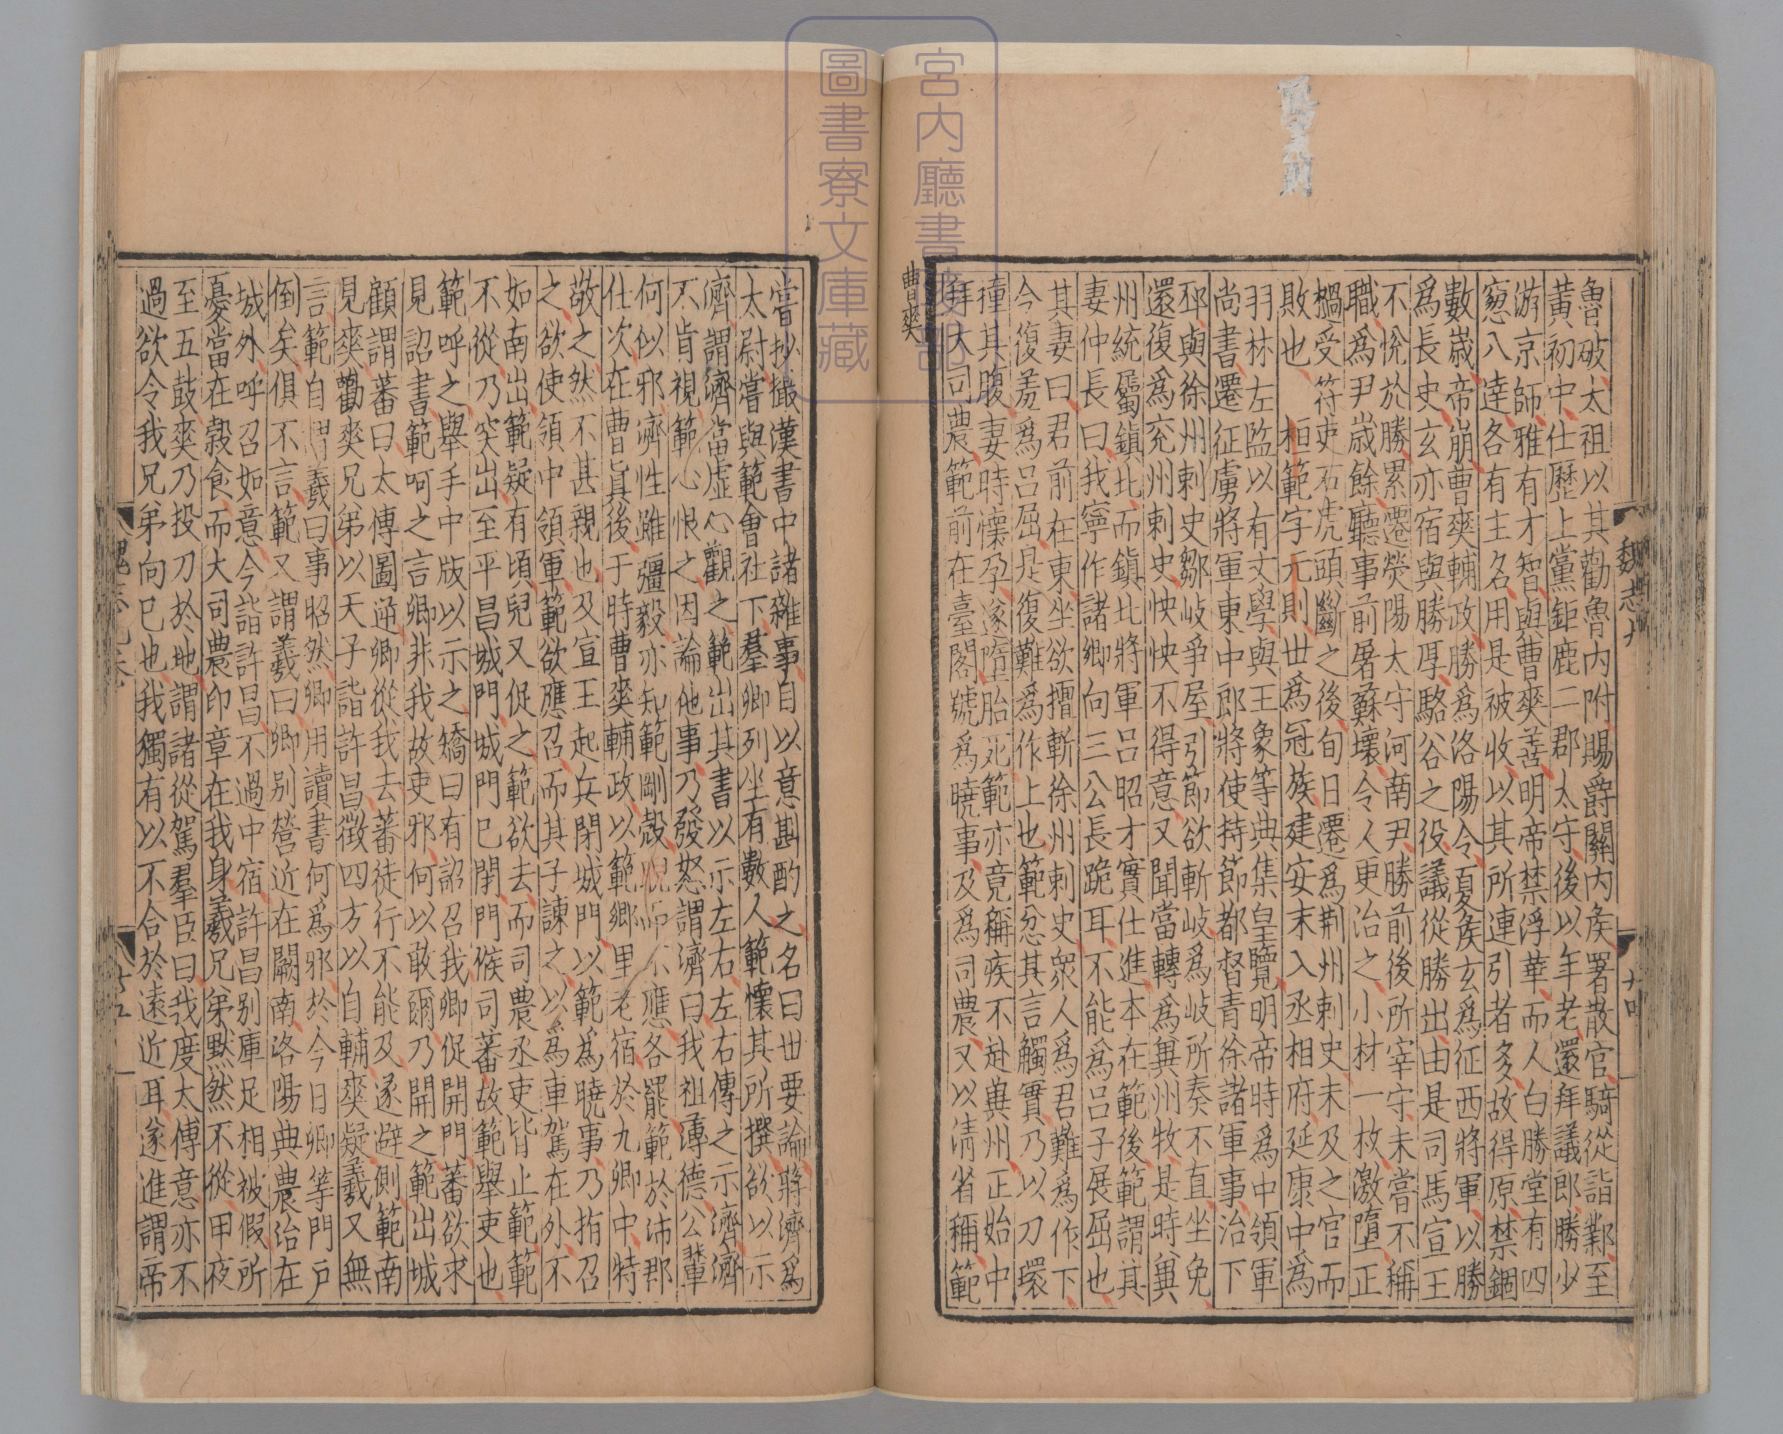 魯破太祖以其勸魯內附賜爵關內侯署散官騎從詣鄴至
黃初中仕歷上黨鉅鹿二郡太守後以年老還拜議郎勝少
游京師雅有才智與曹爽善明帝禁浮華而人白勝堂有四
窻八達各有主名用是被收以其所連引者多故得原禁錮
數歲帝崩曹爽輔政勝爲洛陽令夏侯玄爲征西將軍以勝
爲長史玄亦宿與勝厚駱谷之役議從勝出由是司馬宣王
不悅於勝累遷熒陽太守河南尹勝前後所宰守未嘗不稱
職爲尹歲餘廳事前屠蘇壞令人更治之小材一枚激墮正
檛受符吏石虎頭斷之後旬日遷爲荆州刺史未及之官而
敗也　桓範字元則世爲冠族建安末入丞相府延康中爲
羽林左監以有文學與王象等典集皇覽明帝時爲中領軍
尚書遷征虜將軍東中郎將使持節都督青徐諸軍事治下
邳與徐州刺史鄒岐爭屋引節欲斬岐爲岐所奏不直坐免
還復爲兖州刺史怏怏不得意又聞當轉爲兾州牧是時兾
州統屬鎮北而鎮北將軍呂昭才實仕進本在範後範謂其
妻仲長曰我寧作諸卿向三公長跪耳不能爲呂子展屈也
其妻曰君前在東坐欲擅斬徐州刺史衆人爲君難爲作下
今復羞爲呂屈是復難爲作上也範忿其言觸實乃以刀環
撞其腹妻時懷孕遂墮胎死範亦竟稱疾不赴兾州正始中
拜大司農範前在臺閣號爲曉事及爲司農又以清省稱範
曹爽
嘗抄撮漢書中諸雜事自以意斟酌之名曰世要論蔣濟爲
太尉嘗與範會社下羣卿列坐有數人範懷其所撰欲以示
濟謂濟當虛心觀之範出其書以示左右左右傳之示濟濟
不肯視範心恨之因論他事乃發怒謂濟曰我祖薄德公輩
何似邪濟性雖彊毅亦知範剛毅睨而不應各罷範於沛郡
仕次在曹眞後于時曹爽輔政以範鄉里老宿於九卿中特
敬之然不甚親也及宣王起兵閉城門以範爲曉事乃指召
之欲使領中領軍範欲應召而其子諫之以爲車駕在外不
如南出範疑有頃兒又促之範欲去而司農丞吏皆止範範
不從乃突出至平昌城門城門已閉門候司蕃故範舉吏也
範呼之舉手中版以示之矯曰有詔召我卿促開門蕃欲求
見詔書範呵之言卿非我故吏邪何以敢爾乃開之範出城
顧謂蕃曰太傅圖逆卿從我去蕃徒行不能及遂避側範南
見爽勸爽兄弟以天子詣許昌徵四方以自輔爽疑羲又無
言範自謂羲曰事昭然卿用讀書何爲邪於今日卿等門戶
倒矣俱不言範又謂羲曰卿別營近在闕南洛陽典農治在
城外呼召如意今詣許昌不過中宿許昌別庫足相被假所
憂當在穀食而大司農印章在我身羲兄弟默然不從甲夜
至五鼓爽乃投刀於地謂諸從駕羣臣曰我度太傅意亦不
過欲令我兄弟向已也我獨有以不合於遠近耳遂進謂帝
魏志九
十四
宮內廳書陵部
圖書寮文庫藏